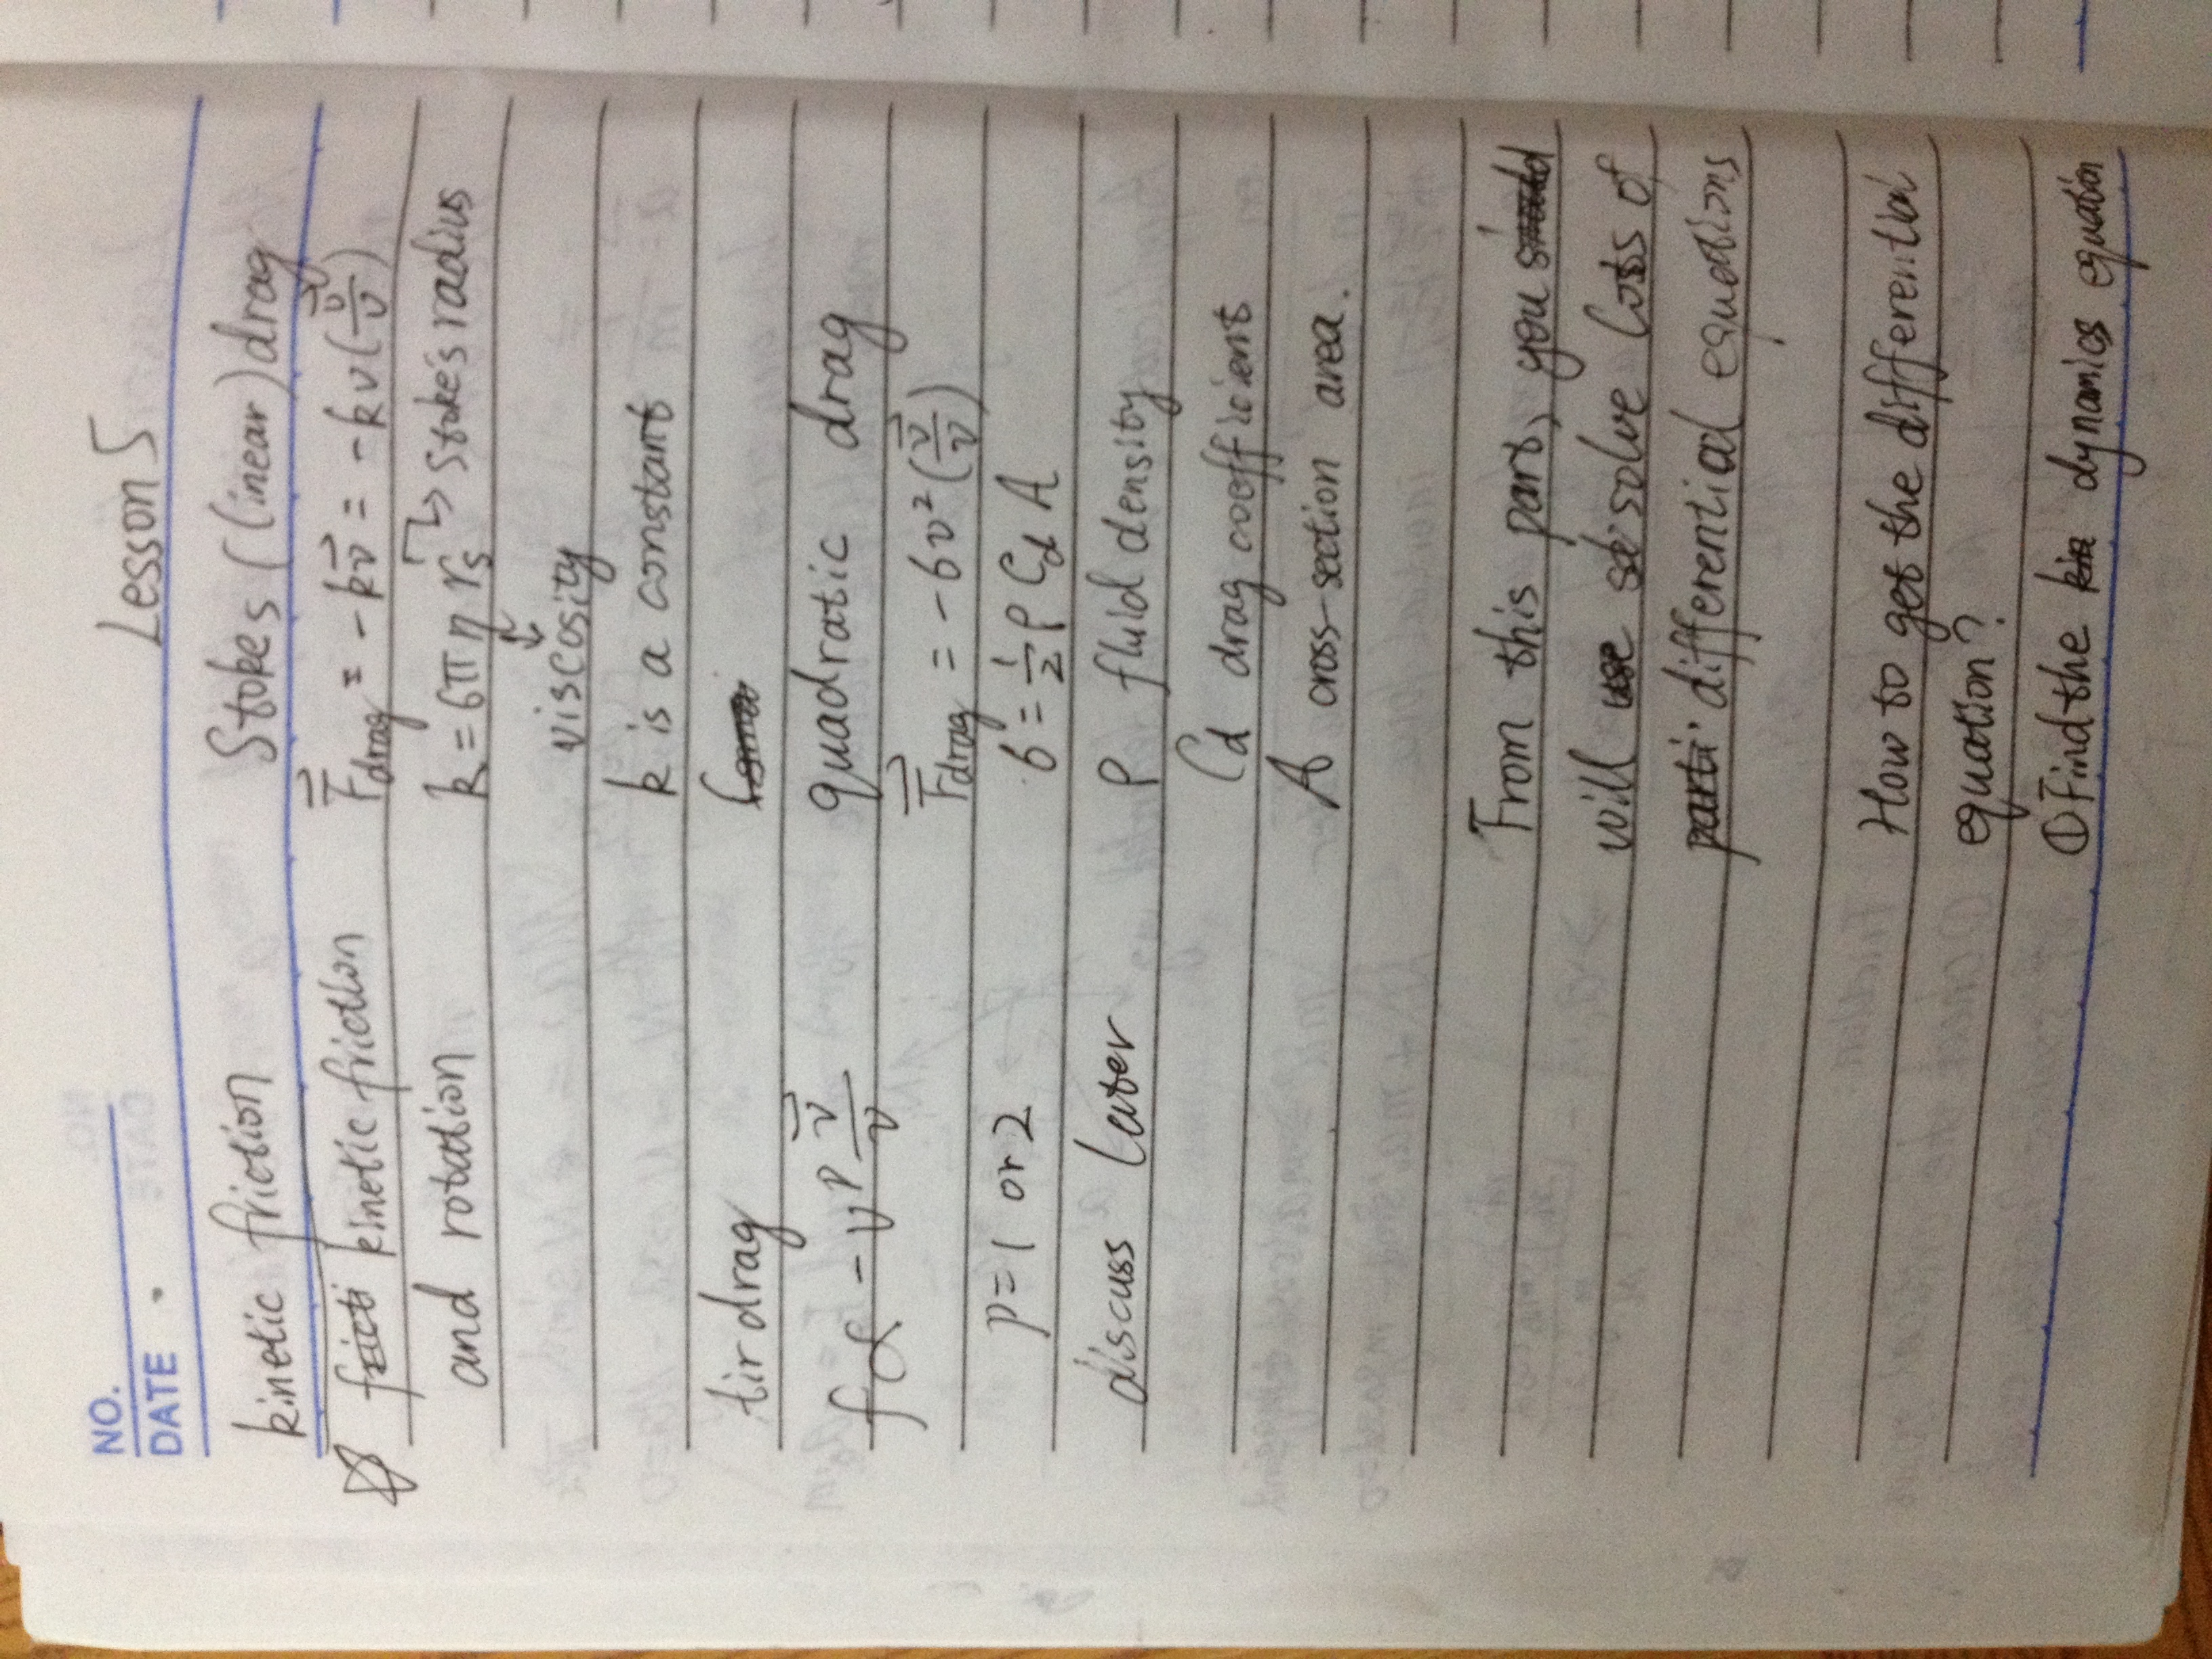 NO.
DATE
Lesson 5
kinetic friction
☆ kinetic friction
and rotation
tir drag
f ∝ -v^p v⃗/v
p=1 or 2
discuss later
Stokes (linear) drag
F⃗drag = -kv⃗ = -kv(v⃗/v)
k = 6πη rs → Stoke's radius
↓
viscosity
k is a constant
quadratic drag
F⃗drag = -6v²(v⃗/v)
6 = 1/2 ρ Cd A
ρ fluid density
Cd drag coefficient
A cross-section area.
From this part, you
will solve lots of
differential equations
How to get the differential
equation?
①Find the dynamics equation